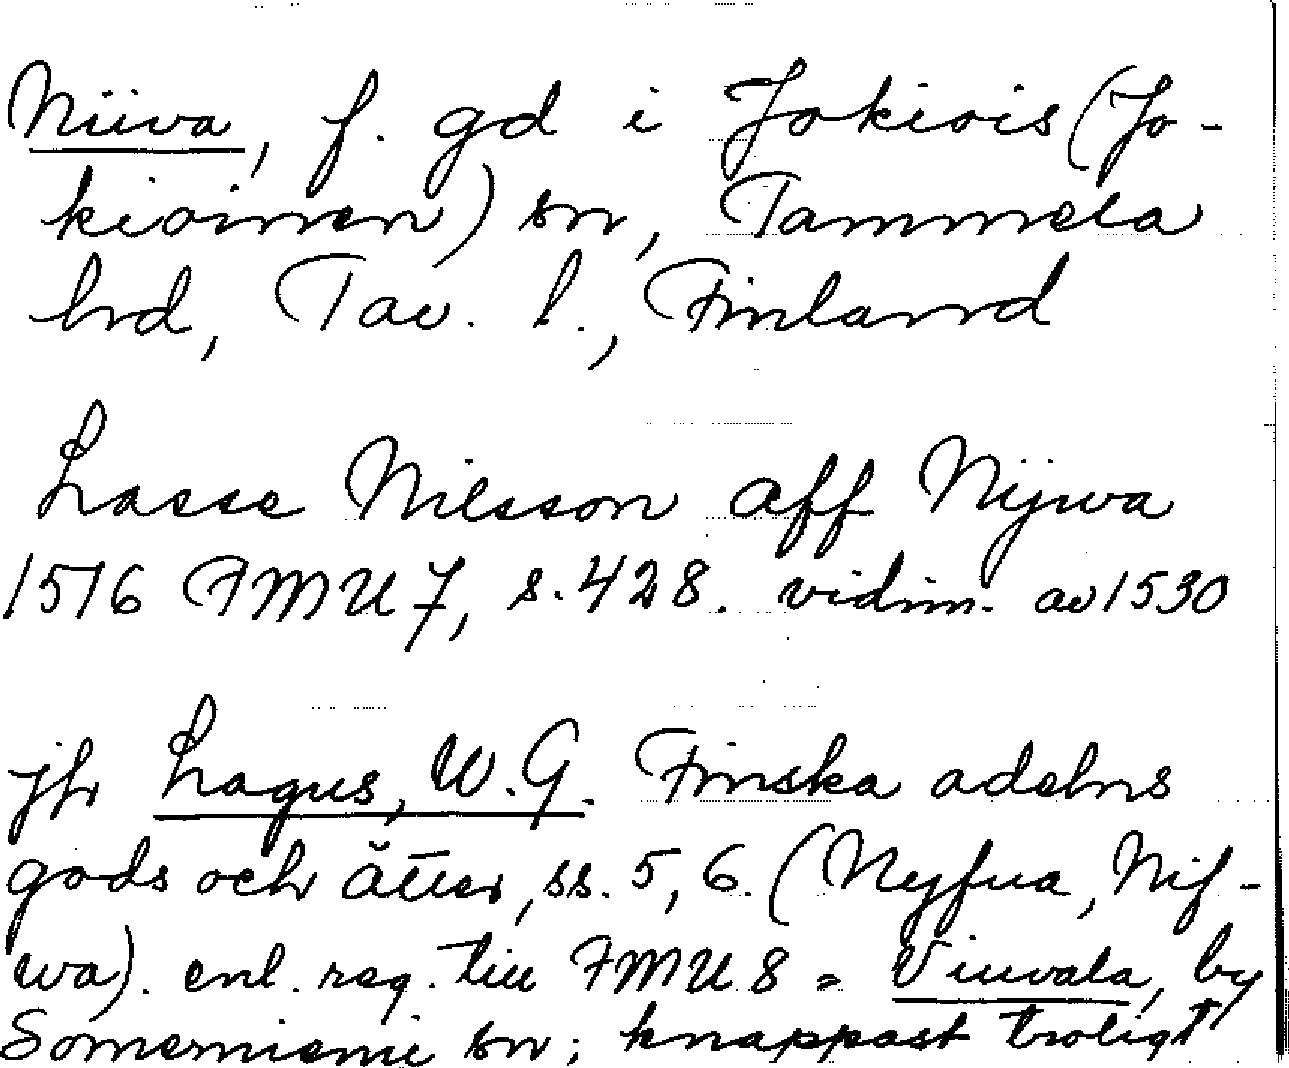 Niiva, f. gd i Jokiois (Jo-
kioinen) sn, Tammela
hrd, Tav. l., Finland
Lasse Nilsson aff Nijwa
1516 FMU 7, s. 428. vidim. av 1530
jfr Lagus, W.G. Finska adelns
gods och ätter, ss. 5, 6. (Nyfua, Nif-
wa). enl. reg. till FMU 8 = Viuvala, by
Somerniemi sn; knappast troligt